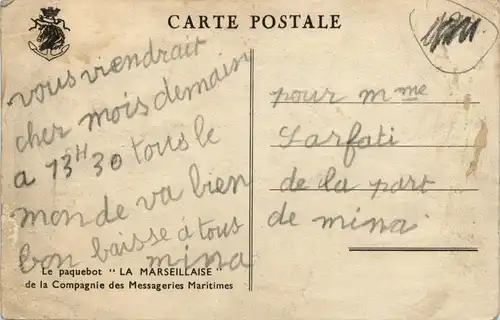 CARTE POSTALE
vous viendrait
cher mois demain
a 13H30 tous le
monde va bien
bon baisse à tous
mina
pour mme
Sarfati
de la part
de mina
Le paquebot "LA MARSEILLAISE"
de la Compagnie des Messageries Maritimes